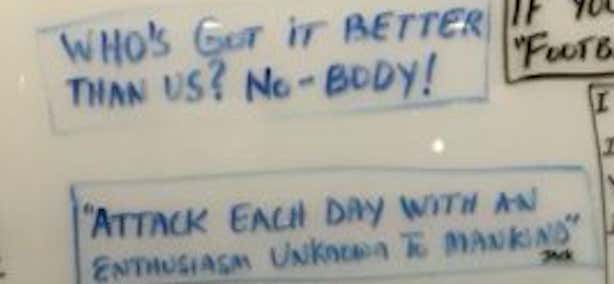 WHO'S GOT IT BETTER
THAN US? NO-BODY!
"ATTACK EACH DAY WITH AN
ENTHUSIASM UNKNOWN TO MANKIND"
JACK
IF YOU
"FOOTB
I
I